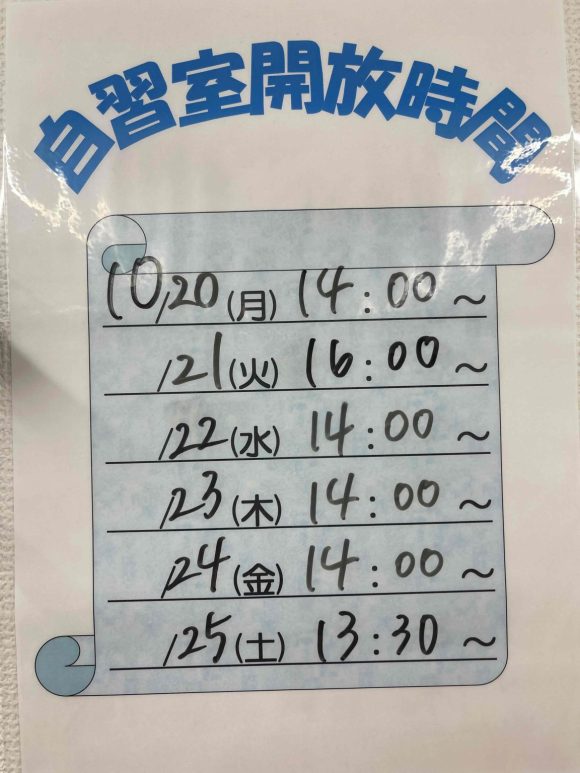 自習室開放時間
10/20(月) 14:00~
/21(火) 16:00~
/22(水) 14:00~
/23(木) 14:00~
/24(金) 14:00~
/25(土) 13:30~